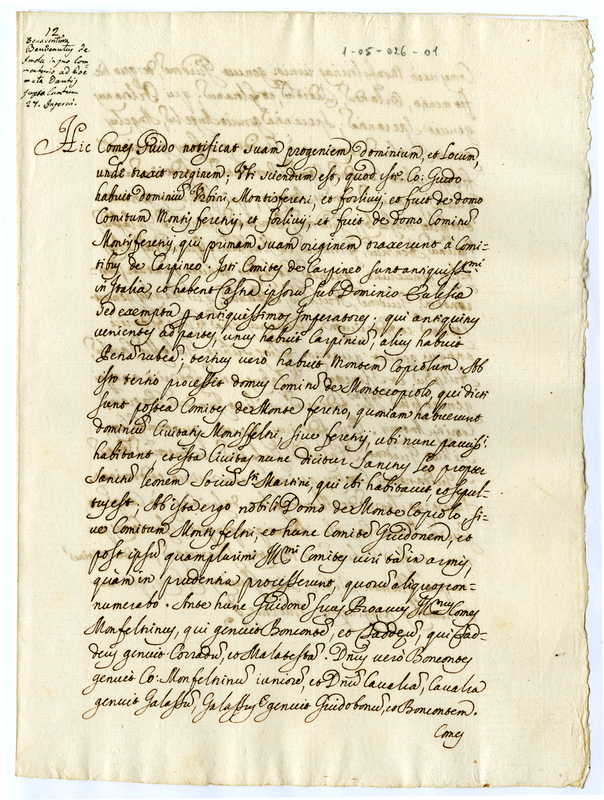 12
Benaventius
Benvenutus de
Imola in suo Com-
mentario ad Poe-
mata Dantis
juxta Cantum
27. Inferni.
1-05-026-01
Hic Comes Guido notificat suam progeniem, dominium, et Locum,
unde traxit originem; Ubi sciendum est, quod iste Co: Guido
habuit dominiũ Urbini, Montisferetri, et forlivij, et fuit de domo
Comitum Montis feretrij, et forlivij, et fuit de domo Comitũ
Montisferetrij, qui primam suam originem traxerunt à Comi-
tibus de Carpineo. Isti Comites de Carpineo sunt antiquissmi
in Italia, et habent Castra ipsorũ sub Dominio Eclesiæ
sed exempta p antiquissimos Imperatores; qui antiquitus
venientes ad partes, unus habuit Carpiniũ, alius habuit
Petrã rubeã; tertius verò habuit Montem Copiolum. Ab
isto tertio processit domus Comitũ de Montecopiolo, qui dicti
sunt postea Comites de Monte feretro, quoniam habuerunt
dominiũ Civitatis Montisfeltri, sive feretrij, ubi nunc paucissi
habitant, et ista Civitas nunc dicitur Sanctus Leo propter
Sanctũ leonem sociũ Sti Martini, qui ibi habitavit, et sepul-
tus est. Ab ista ergo nobili Domo de Monte Copiolo si-
ve Comitum Montis feltri, et hunc Comitẽ Guidonem, et
post ipsũ quamplurimi Illmi Comites viri tã in armis,
quàm in prudentia processerunt, quorũ aliquos con-
numerabo. Ante hunc Guidonẽ suus Proavus Illmus Comes
Monfeltrinus, qui genuit Boncontẽ, et Taddeũ, qui Tad-
deus genuit Corradũ, et Malatestã. Dnus verò Boncontes
genuit Co: Monfeltrinũ iuniorẽ, et Dnũ Cavalcã, Cavalca
genuit Galassũ, Galassus genuit Guidobonũ, et Boncontem.
Comes